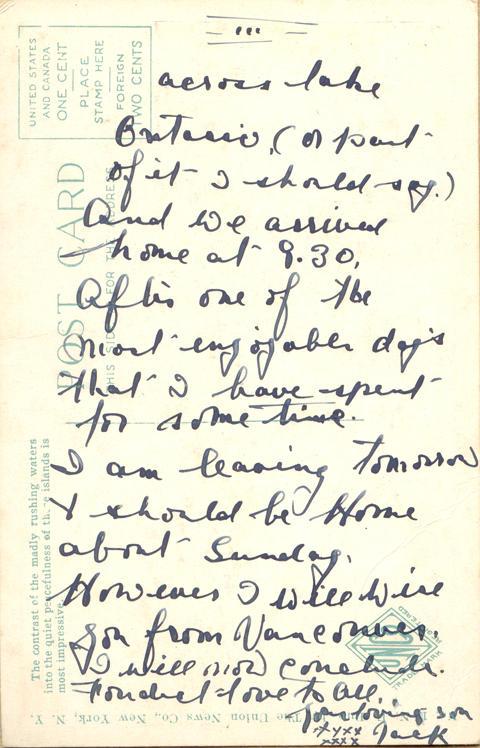 "'"
across lake
Ontario, (or part
of it I should say.)
And we arrived
home at 9.30,
After one of the
most enjoyable days
that I have spent
for some time.
I am leaving tomorrow
& should be Home
about Sunday.
However I will wire
you from Vancouver.
I will now conclude.
Fondest love to all,
Your loving son
Jack
xxxx
xxxx
UNITED STATES
AND CANADA
ONE CENT
PLACE
STAMP HERE
FOREIGN
TWO CENTS
POST CARD
THIS SIDE FOR THE ADDRESS
The contrast of the madly rushing waters
into the quiet peacefulness of these islands is
most impressive.
The Union News Co., New York, N. Y.
TRADE MARK